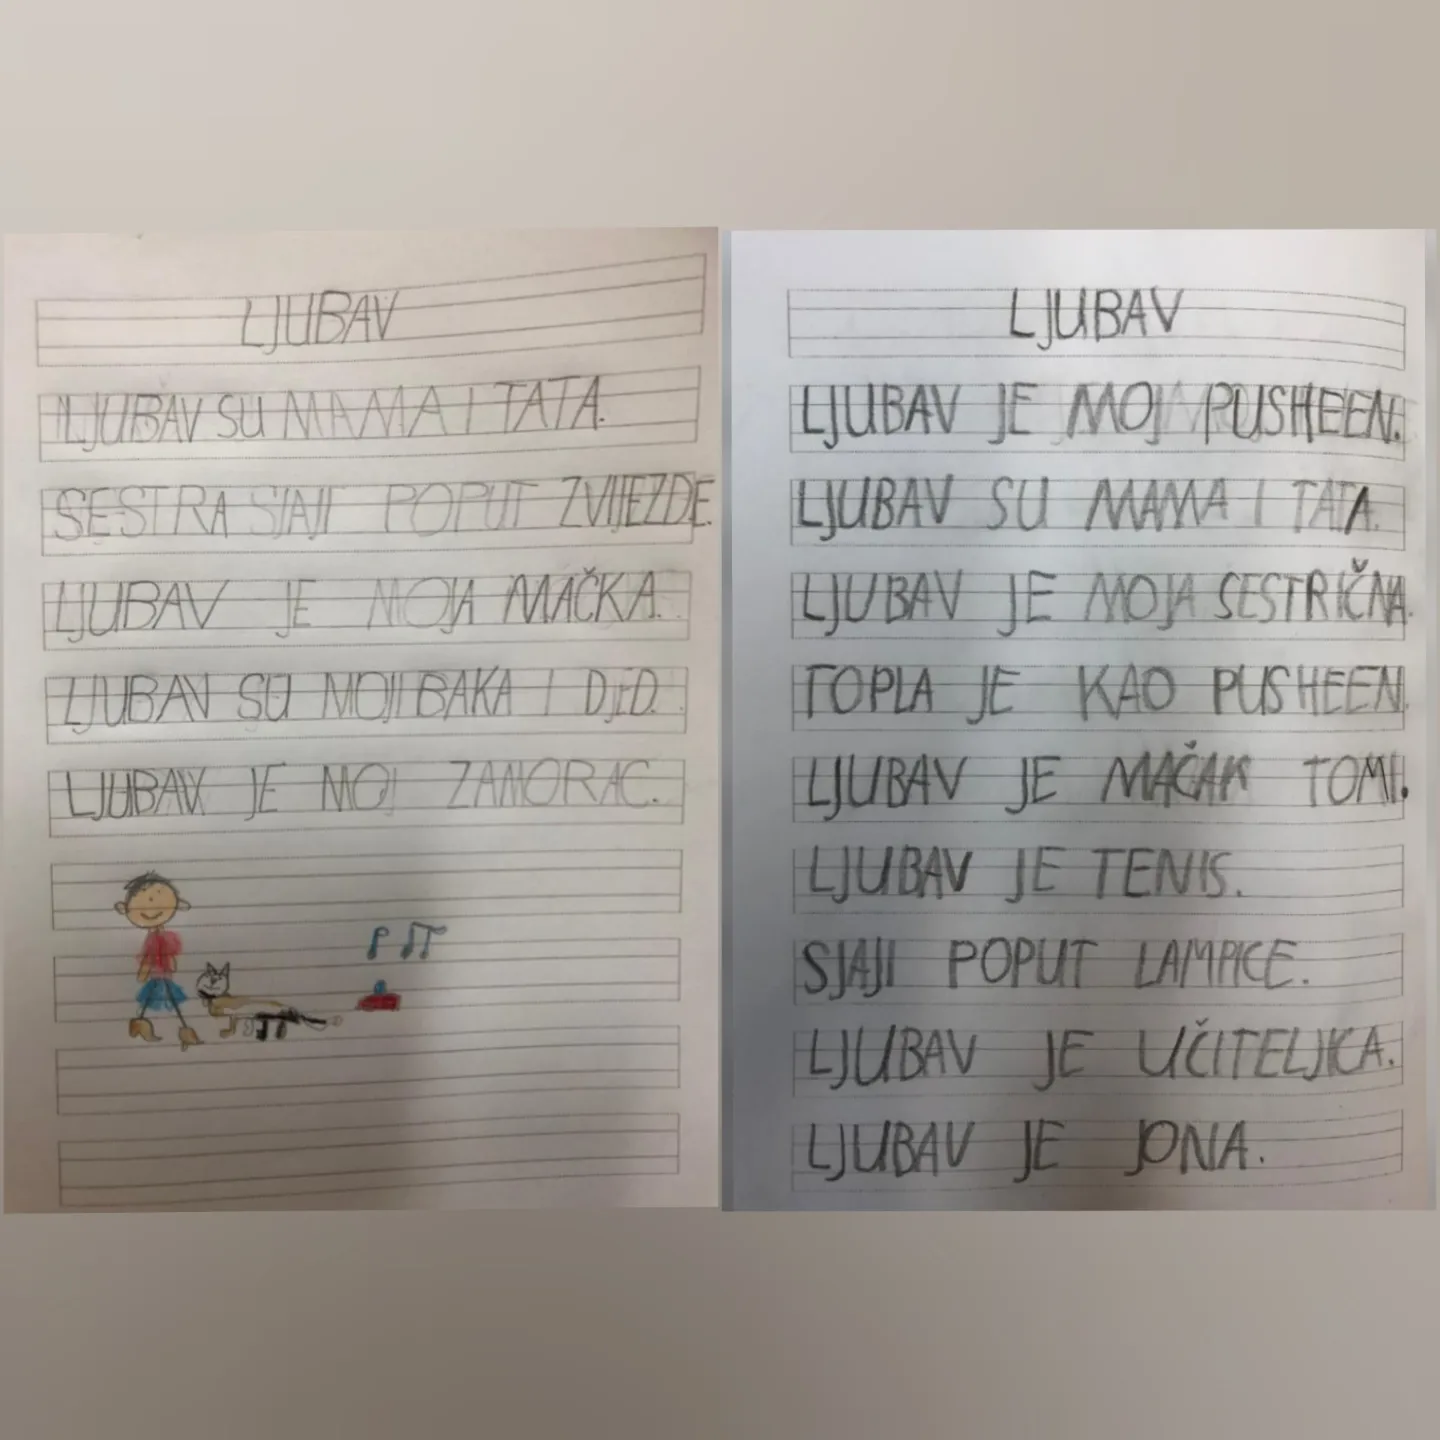 LJUBAV
LJUBAV SU MAMA I TATA.
SESTRA SJAJI POPUT ZVIJEZDE.
LJUBAV JE MOJA MAČKA.
LJUBAV SU MOJI BAKA I DJED.
LJUBAV JE MOJ ZAMORAC.
LJUBAV
LJUBAV JE MOJ PUSHEEN.
LJUBAV SU MAMA I TATA.
LJUBAV JE MOJA SESTRIČNA.
TOPLA JE KAO PUSHEEN.
LJUBAV JE MAČAK TOMI.
LJUBAV JE TENIS.
SJAJI POPUT LAMPICE.
LJUBAV JE UČITELJICA.
LJUBAV JE JONA.